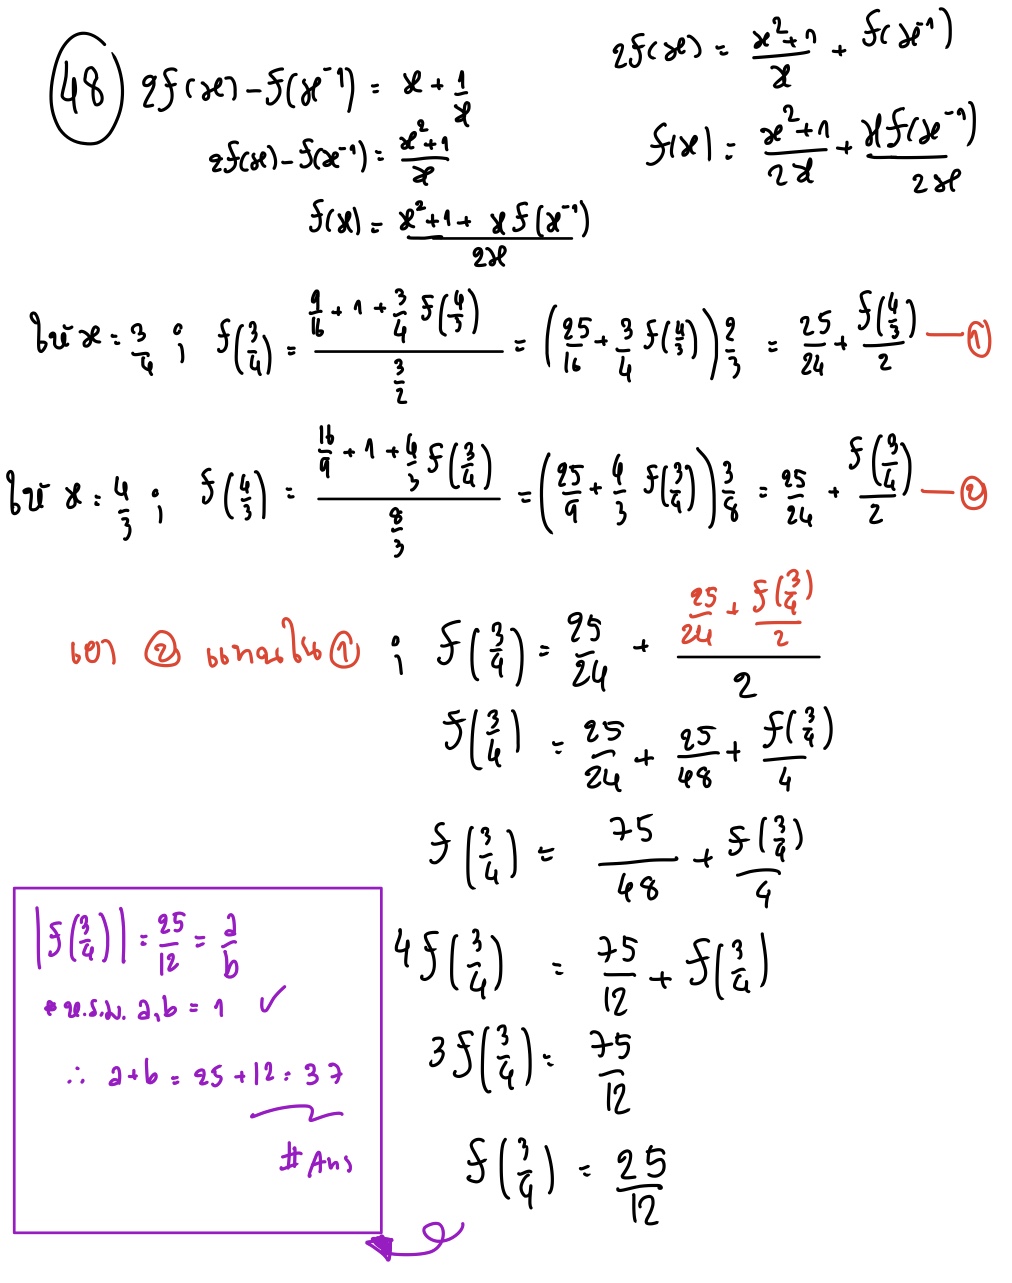 48 2f(x) - f(x⁻¹) = x + 1/x
2f(x) - f(x⁻¹) = (x²+1)/x
f(x) = (x²+1 + x f(x⁻¹))/2x
2f(x) = (x²+1)/x + f(x⁻¹)
f(x) = (x²+1)/2x + x f(x⁻¹)/2x
ให้ x = 3/4 ; f(3/4) = (9/16 + 1 + 3/4 f(4/3))/(3/2) = (25/16 + 3/4 f(4/3)) 2/3 = 25/24 + f(4/3)/2 — ①
ให้ x = 4/3 ; f(4/3) = (16/9 + 1 + 4/3 f(3/4))/(8/3) = (25/9 + 4/3 f(3/4)) 3/8 = 25/24 + f(3/4)/2 — ②
เอา ② แทนใน ① ; f(3/4) = 25/24 + (25/24 + f(3/4)/2)/2
f(3/4) = 25/24 + 25/48 + f(3/4)/4
f(3/4) = 75/48 + f(3/4)/4
4f(3/4) = 75/12 + f(3/4)
3f(3/4) = 75/12
f(3/4) = 25/12
|f(3/4)| = 25/12 = a/b
* ห.ร.ม. a,b = 1 ✓
∴ a+b = 25+12 = 37
# Ans